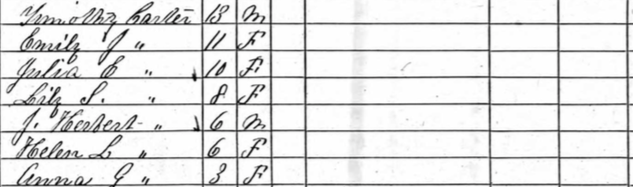 Timothy Carter 13 M
Emily J " 11 F
Julia E " 10 F
Lily S. " 8 F
J. Herbert " 6 M
Helen L " 6 F
Anna G " 3 F